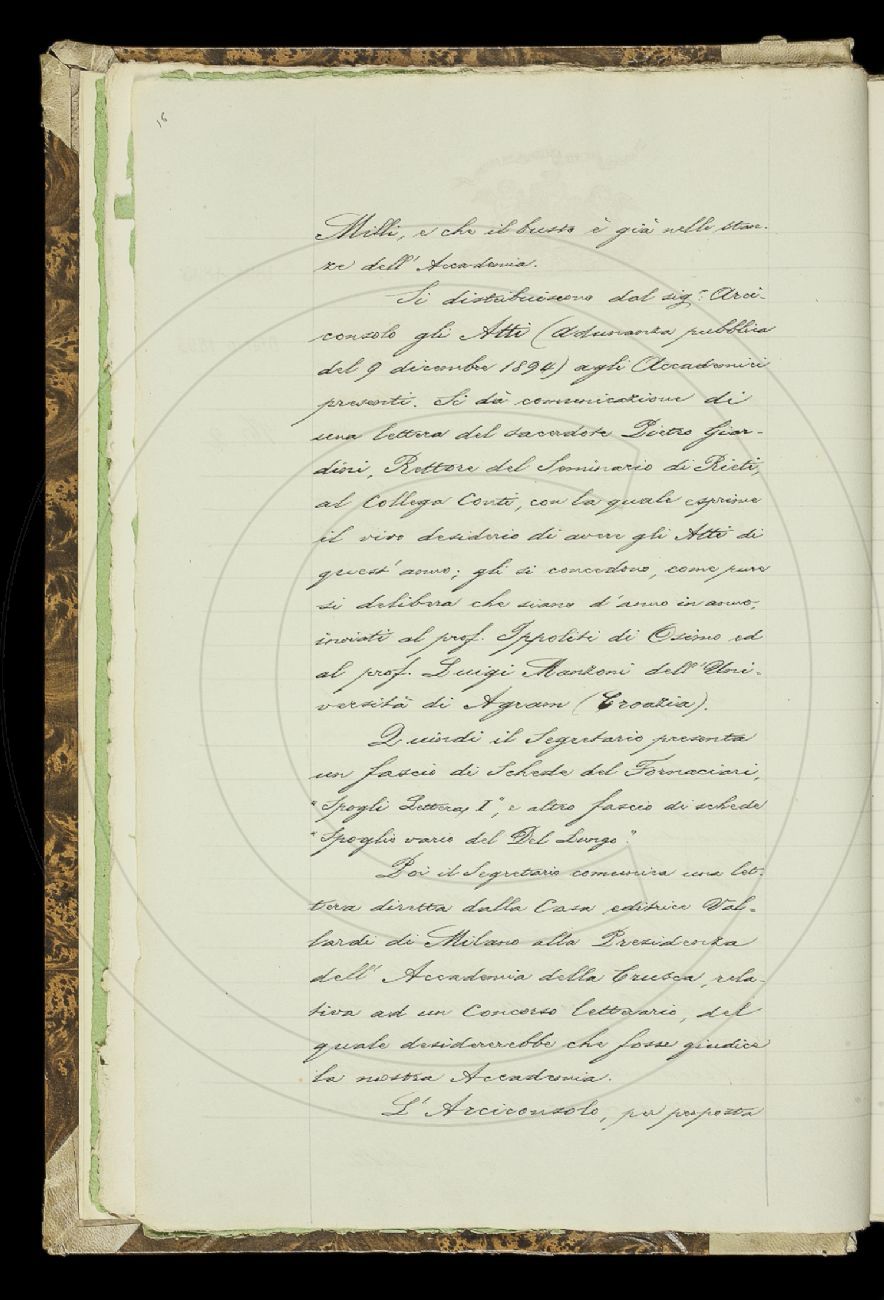 16
Milli, e che il busto è già nelle stan-
ze dell' Accademia.
Si distribuiscono dal sig.r Arci-
consolo gli Atti (Adunanza pubblica
del 9 dicembre 1894) agli Accademici
presenti. Si dà comunicazione di
una lettera del sacerdote Pietro Giar-
dini, Rettore del Seminario di Rieti,
al Collega Conti, con la quale esprime
il vivo desiderio di avere gli Atti di
quest' anno; gli si concedono, come pure
si delibera che siano d'anno in anno,
inviati al prof. Ippoliti di Osimo ed
al prof. Luigi Manzoni dell' Uni-
versità di Agram (Croazia).
Quindi il Segretario presenta
un fascio di Schede del Fornaciari,
"Spogli Lettera I", e altro fascio di schede
"Spoglio vario del Del Lungo".
Poi il Segretario comunica una let-
tera diretta dalla Casa editrice Val-
lardi di Milano alla Presidenza
dell' Accademia della Crusca, rela-
tiva ad un Concorso letterario, del
quale desidererebbe che fosse giudice
la nostra Accademia.
L' Arciconsolo, per proposta